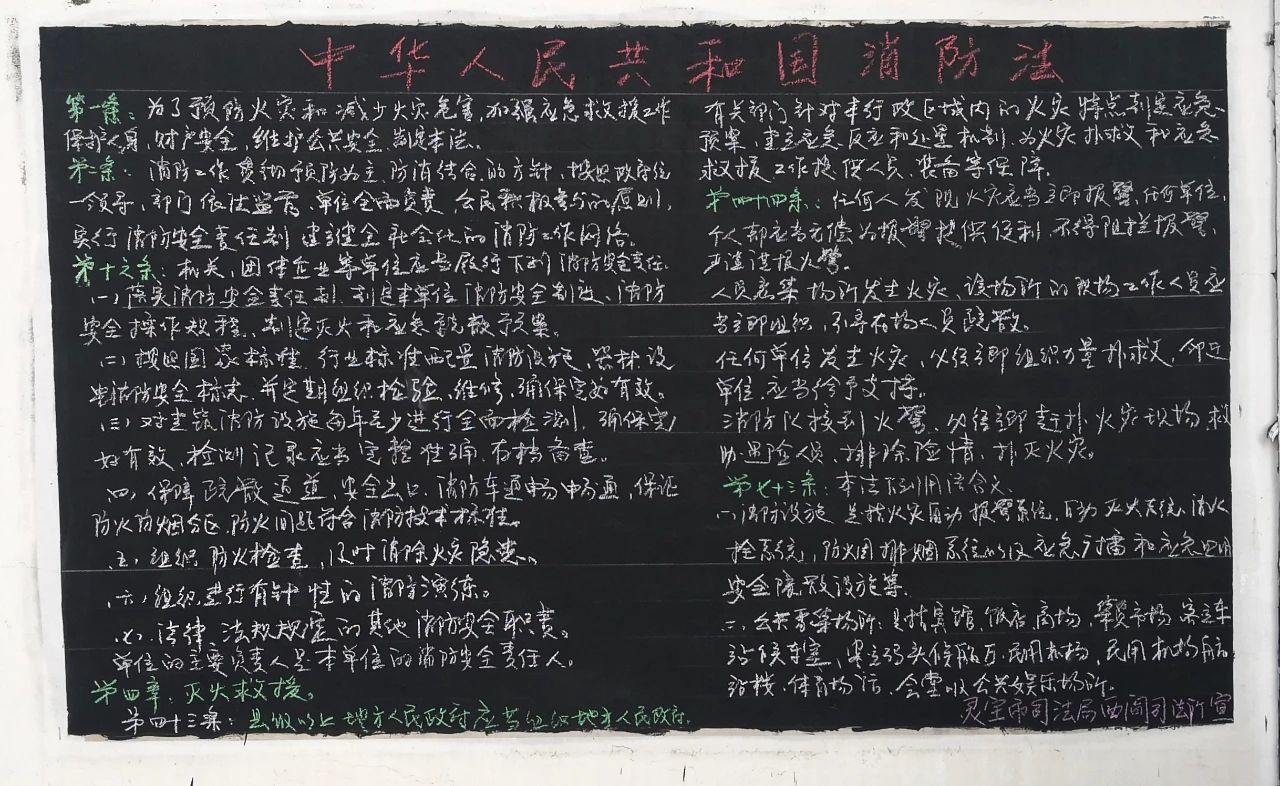 中华人民共和国消防法
第一条：为了预防火灾和减少火灾危害,加强应急救援工作
保护人身,财产安全,维护公共安全,制定本法。
第二条：消防工作贯彻预防为主,防消结合的方针,按照政府统
一领导,部门依法监管,单位全面负责,公民积极参与的原则,
实行消防安全责任制,建立健全社会化的消防工作网络。
第十六条：机关,团体企业等单位应当履行下列消防安全责任.
(一)落实消防安全责任制,制定本单位消防安全制度、消防
安全操作规程,制定灭火和应急疏散预案。
(二)按照国家标准,行业标准配置消防设施、器材,设
置消防安全标志,并定期组织检验、维修,确保完好有效。
(三)对建筑消防设施每年至少进行全面检测,确保完
好有效,检测记录应当完整准确,存档备查。
(四)保障疏散通道,安全出口,消防车通畅通,保证
防火防烟分区,防火间距符合消防技术标准。
(五)组织防火检查,及时消除火灾隐患。
(六)组织进行有针性的消防演练。
(七)法律,法规规定的其他消防安全职责。
单位的主要负责人是本单位的消防安全责任人。
第四章：灭火救援。
第四十三条：县级以上地方人民政府应当组织地方人民政府.
有关部门针对本行政区域内的火灾特点制定应急
预案,建立应急反应和处置机制,为火灾扑救和应急
救援工作提供人员,装备等保障。
第四十四条：任何人发现火灾应当立即报警,任何单位,
个人都应当无偿为报警提供便利,不得阻拦报警,
严禁谎报火警。
人员密集场所发生火灾,该场所的现场工作人员应
当立即组织,引导在场人员疏散。
任何单位发生火灾,必须立即组织力量扑救,邻近
单位应当给予支持。
消防队接到火警,必须立即赶扑火灾现场,救
助遇险人员,排除险情,扑灭火灾。
第七十三条：本法下列用语含义.
一.消防设施,是指火灾自动报警系统,自动灭火系统,消火
栓系统,防火烟排烟系统以及应急广播和应急照明
安全疏散设施等.
二.公共聚集场所,是指宾馆,饭店,商场,集贸市场,客运车
站候车室,客运码头候船厅,民用机场,民用机场航
站楼,体育场活,会堂以公共娱乐场所.
灵宝市司法局西阎司法所宣